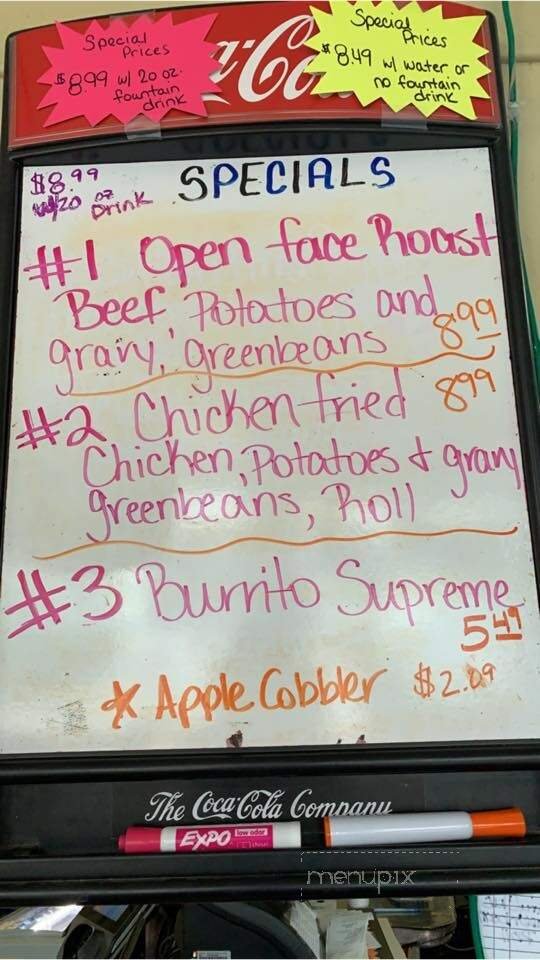 Special
Prices
$8.99 w/ 20 oz.
fountain
drink
Special
Prices
$8.49 w/ water or
no fountain
drink
a-Co
$8.99
w/20 oz Drink
SPECIALS
#1 Open face Roast
Beef, Potatoes and
gravy, greenbeans 8.99
#2 Chicken fried 899
Chicken, Potatoes + gravy
greenbeans, Roll
#3 Burrito Supreme
5.49
* Apple Cobbler $2.09
The Coca-Cola Company
EXPO low odor
menupix